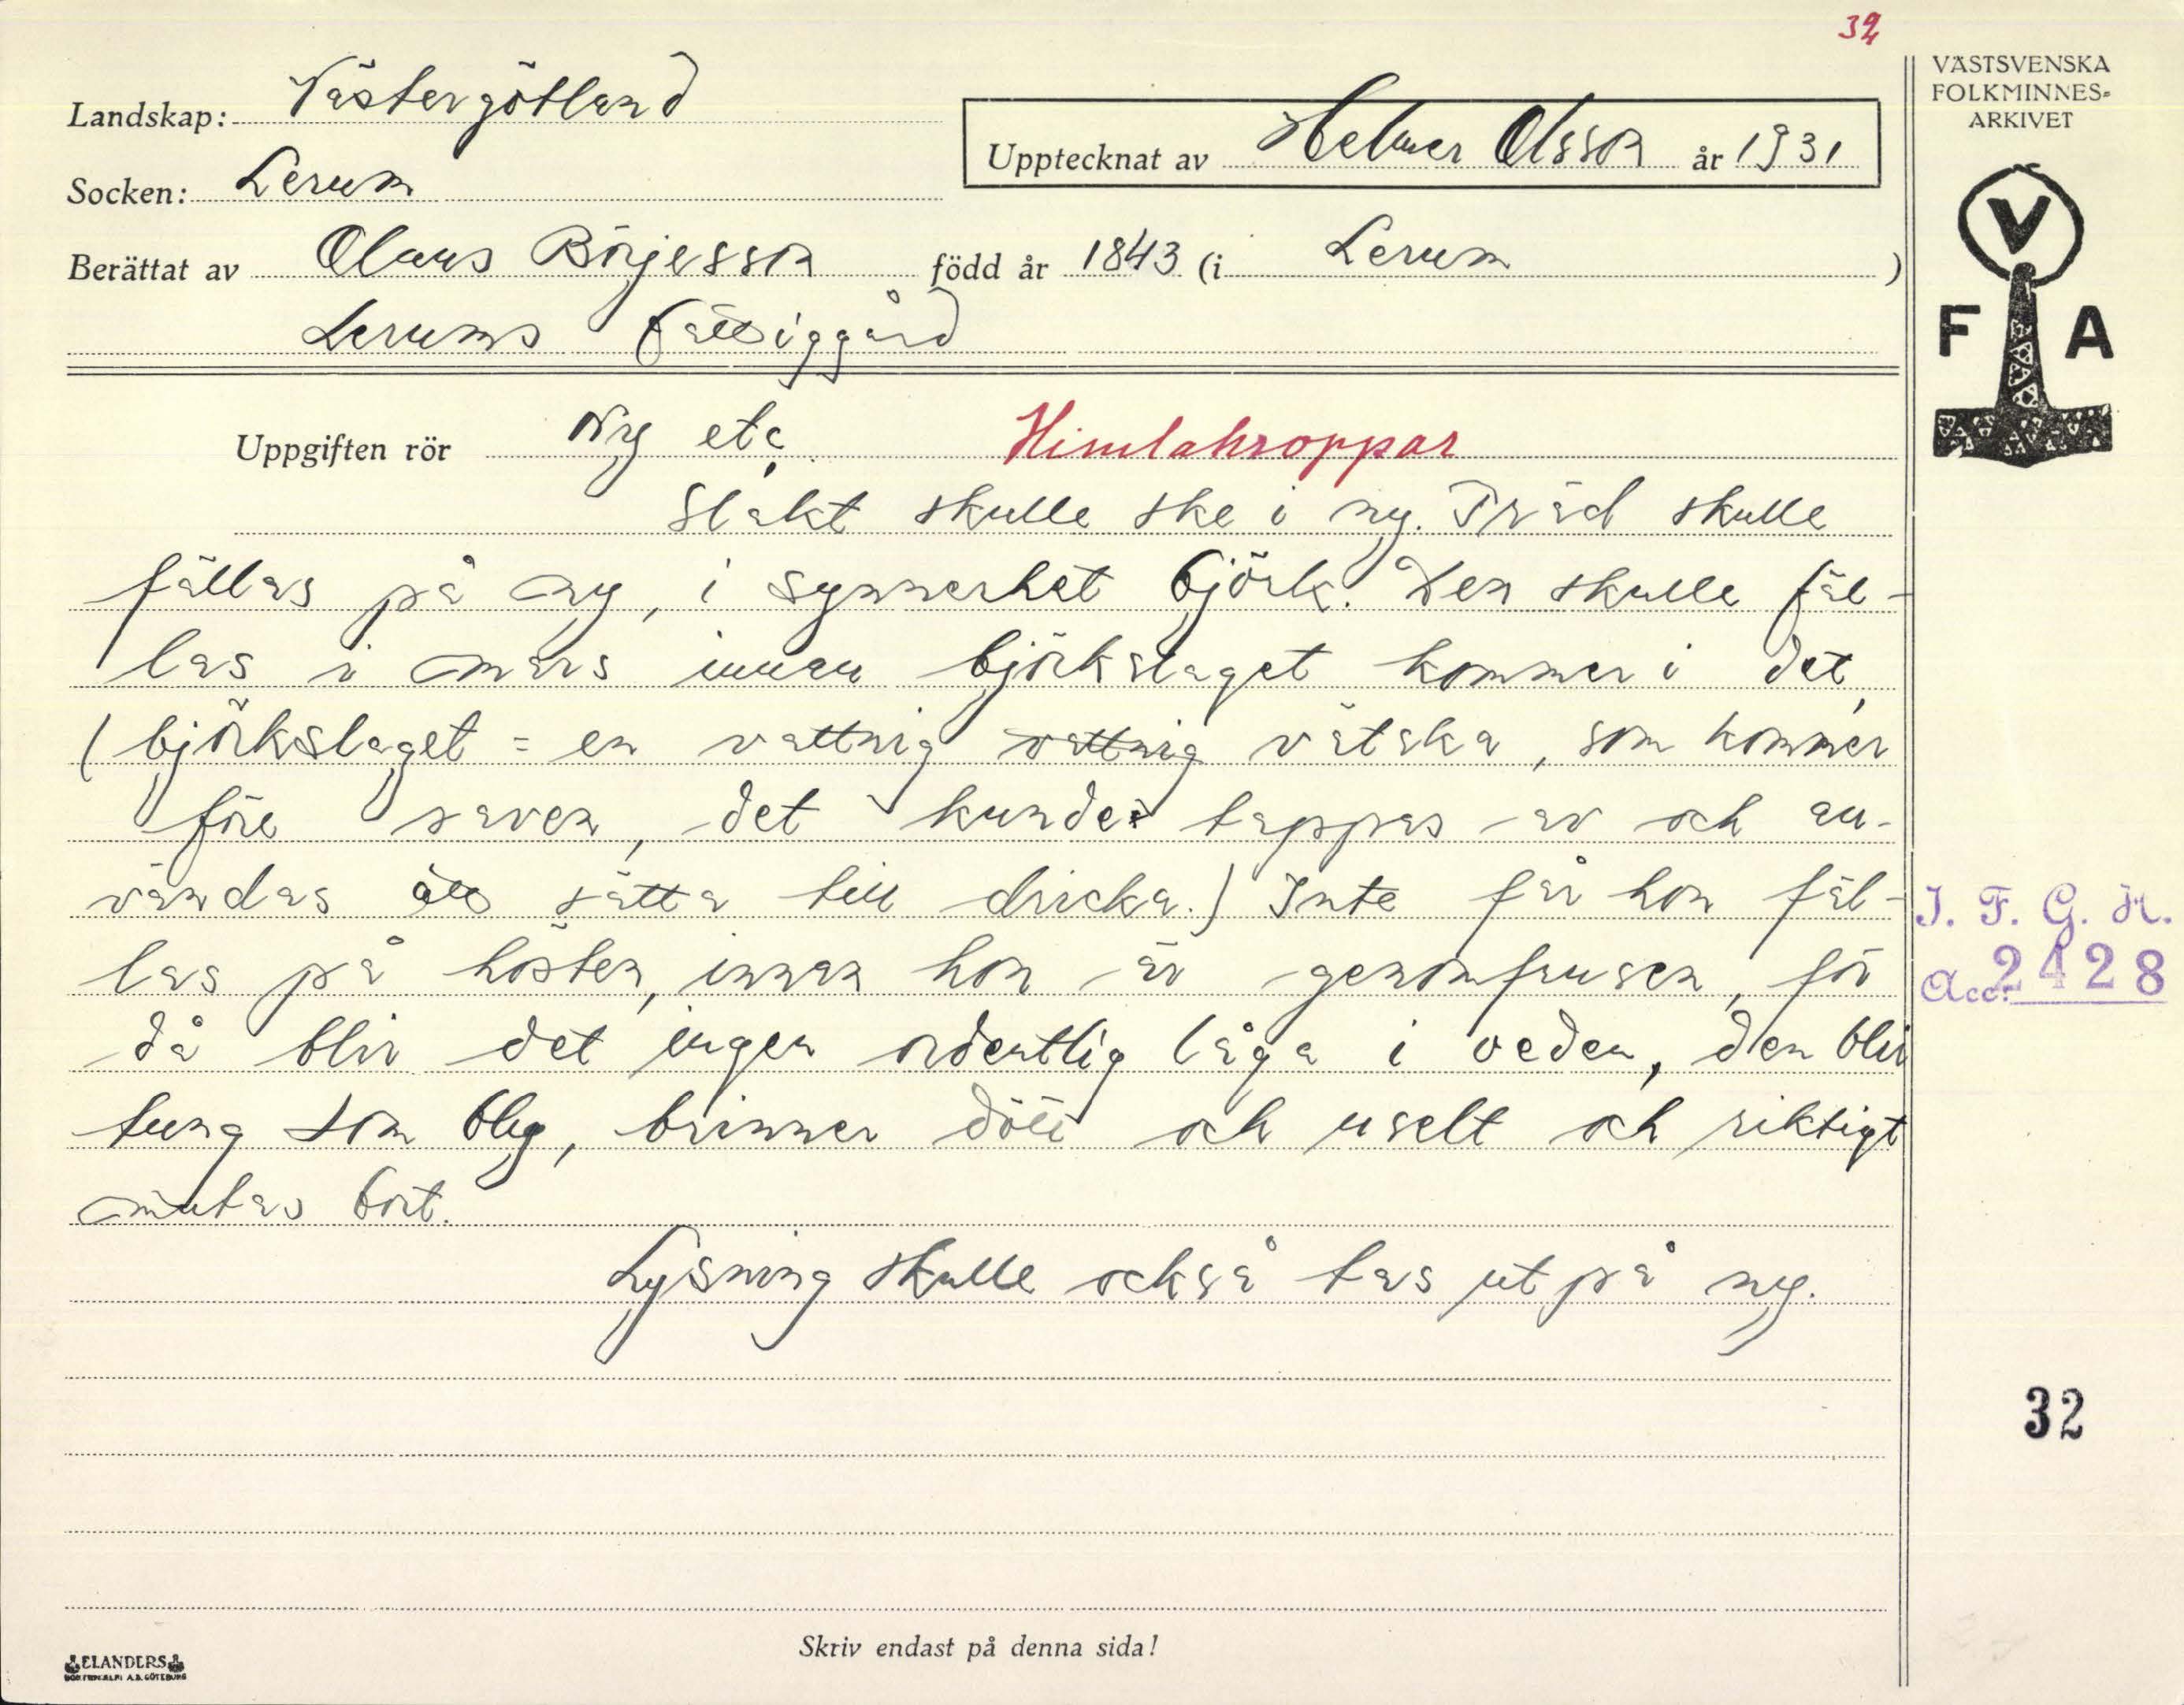 32
VÄSTSVENSKA
FOLKMINNES=
ARKIVET
Landskap: Västergötland
Upptecknat av Helmer Olsson år 1931
Socken: Lerum
Berättat av Claus Börjesson född år 1843 (i Lerum )
Lerums Fattiggård
V
F A
Uppgiften rör Ny etc Himlakroppar
Slakt skulle ske i ny. Träd skulle
fällas på ny, i synnerhet björk. Den skulle fäl-
las i mars innan björkslaget kommer i det,
(björkslaget = en vattnig vattnig vätska, som kommer
före saven, det kunde tappas av och an-
vändas att sätta till dricka.) Inte får hon fäl-
las på hösten, innan hon är genomfrusen, för
då blir det ingen ordentlig låga i veden, den blir
tung som bly, brinner dött och uselt och riktigt
mutas bort.
Lysning skulle också tas ut på ny.
I. F. G. H.
Acc. 2428
32
Skriv endast på denna sida!
ELANDERS